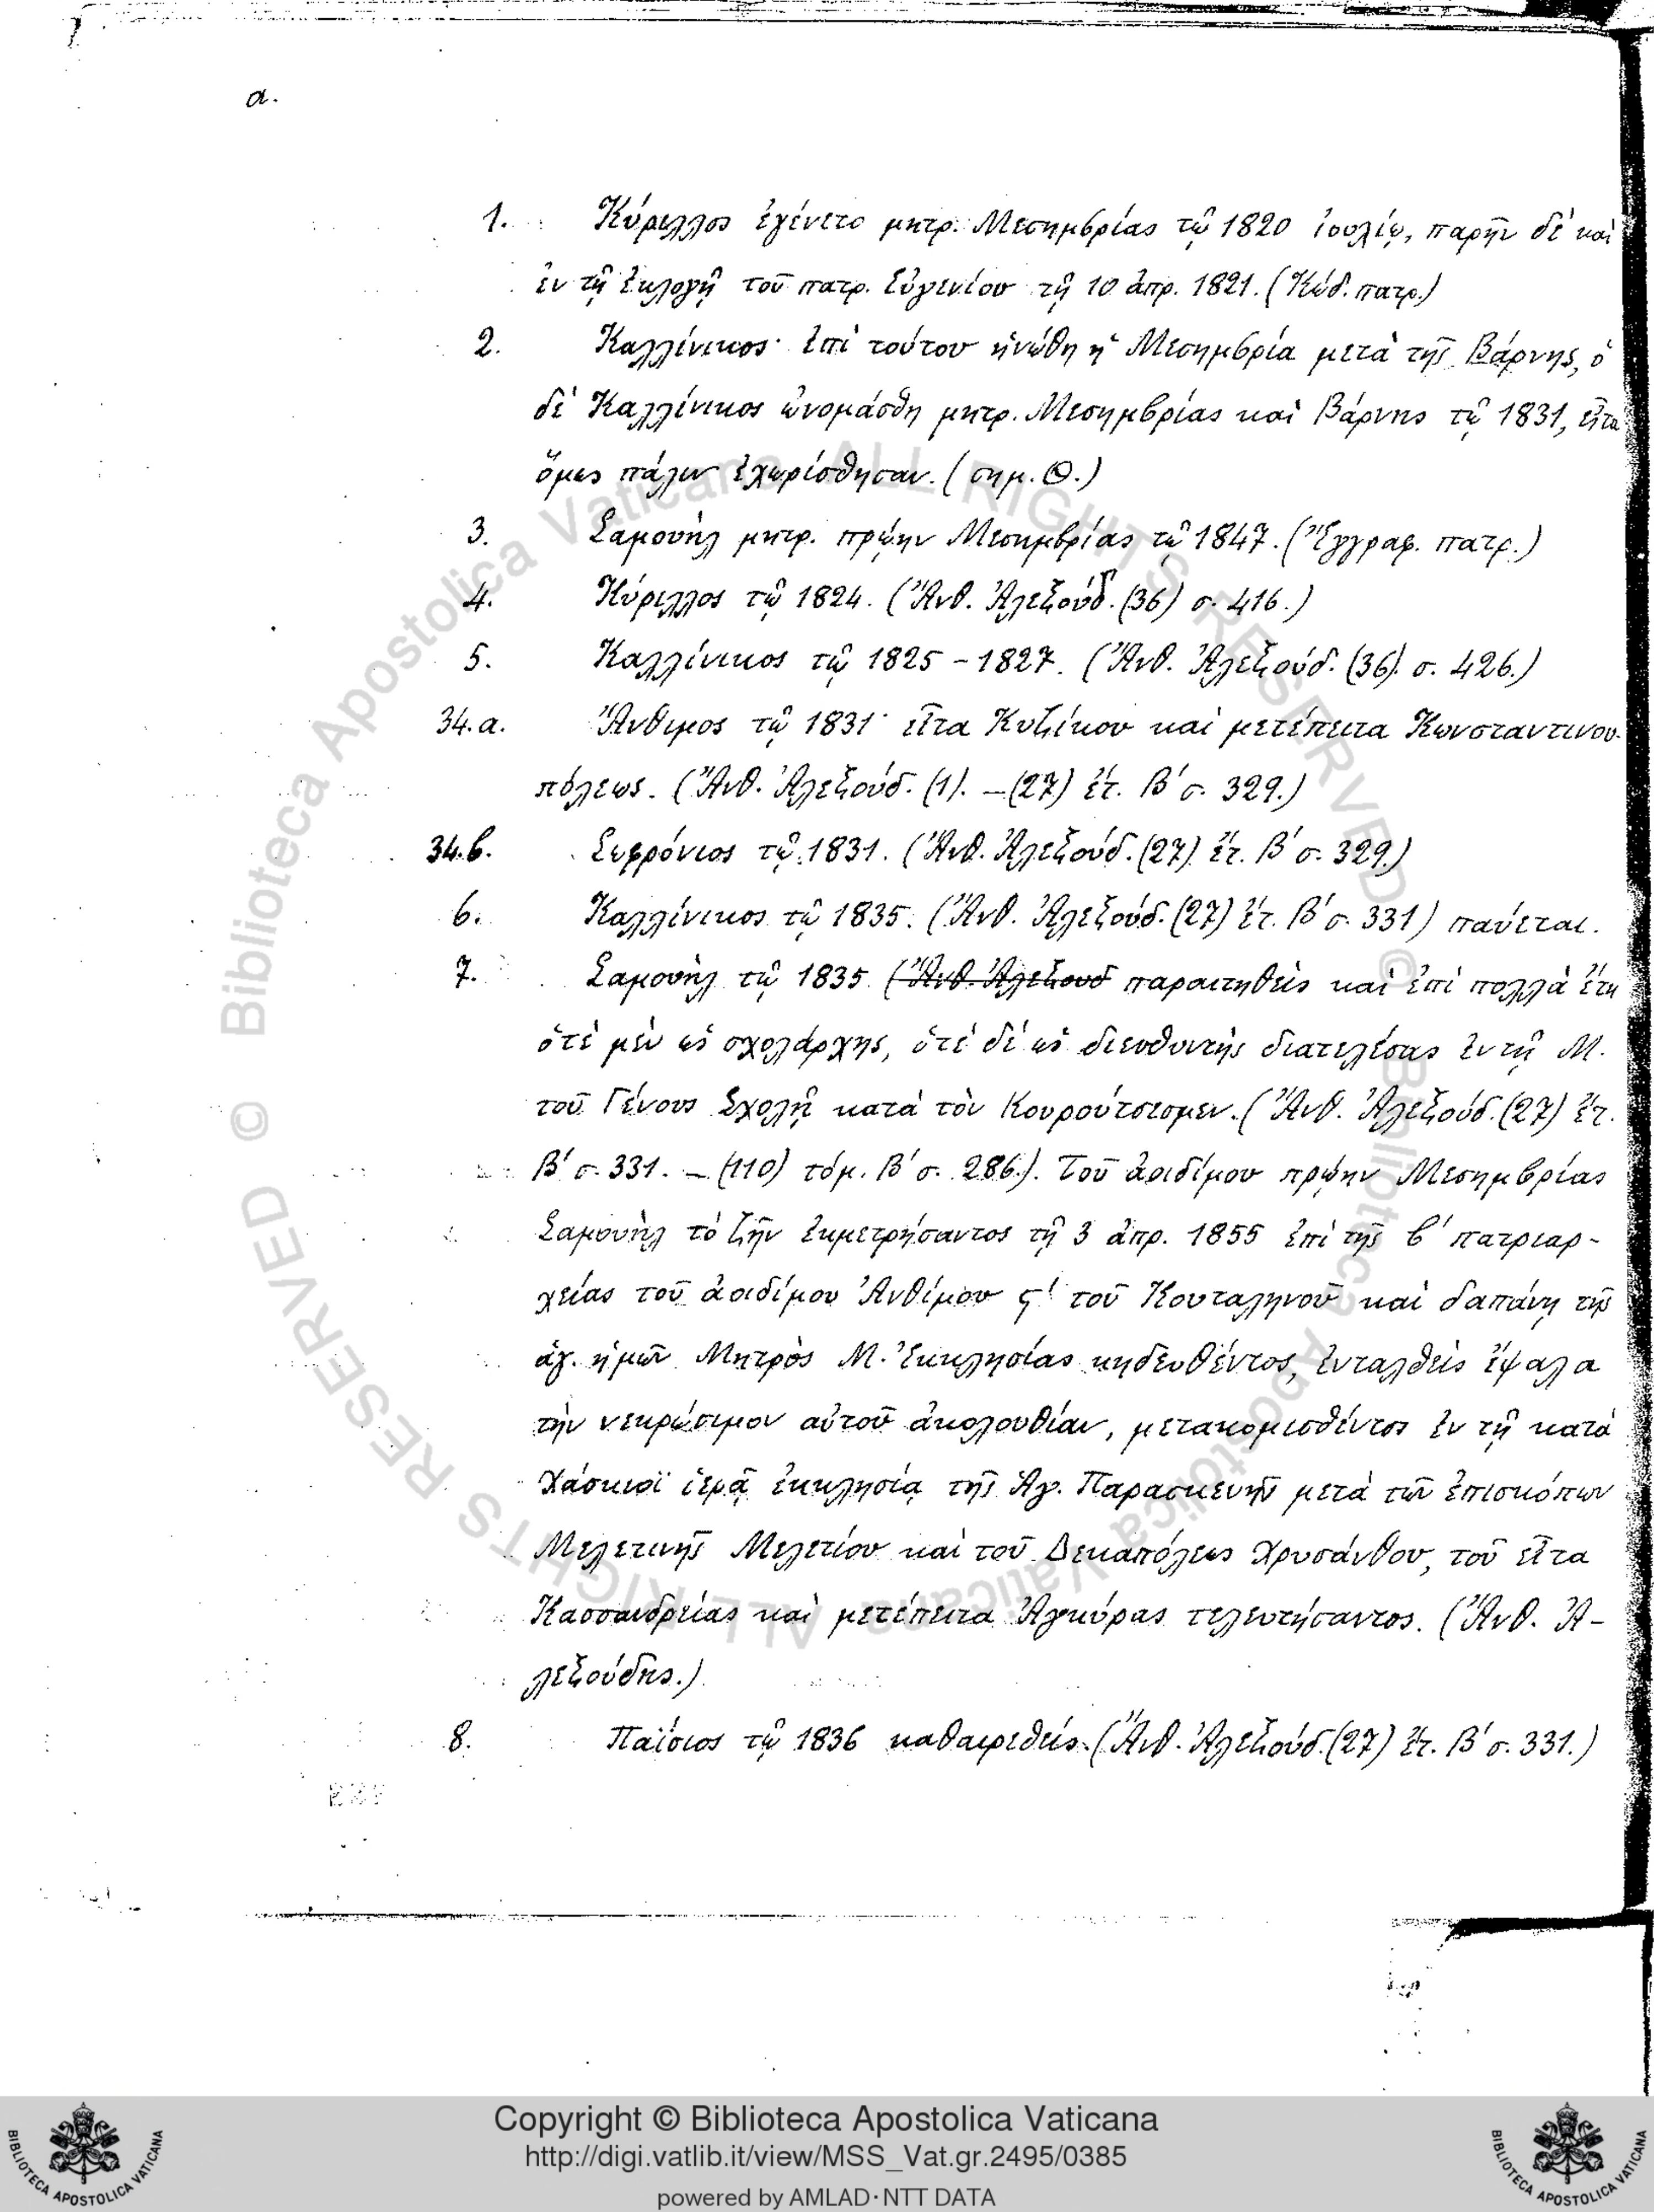 α.
1. Κύριλλος ἐγένετο μητρ. Μεσημβρίας τῷ 1820 ἰουλίῳ, παρῆν δὲ καὶ
ἐν τῇ ἐκλογῇ τοῦ πατρ. Εὐγενίου τῇ 10 ἀπρ. 1821. (Κώδ. πατρ.)
2. Καλλίνικος· ἐπὶ τούτου ἡνώθη ἡ Μεσημβρία μετὰ τῆς Βάρνης, ὁ
δὲ Καλλίνικος ὠνομάσθη μητρ. Μεσημβρίας καὶ Βάρνης τῷ 1831, εἶτα
ὅμως πάλιν ἐχωρίσθησαν. (σημ. Θ.)
3. Σαμουὴλ μητρ. πρώην Μεσημβρίας τῷ 1847. (Ἔγγραφ. πατρ.)
4. Κύριλλος τῷ 1824. (Ἄνθ. Ἀλεξούδ. (36) σ. 416.)
5. Καλλίνικος τῷ 1825 - 1827. (Ἄνθ. Ἀλεξούδ. (36). σ. 426.)
34.α. Ἄνθιμος τῷ 1831· εἶτα Κυζίκου καὶ μετέπειτα Κωνσταντινου-
πόλεως. (Ἄνθ. Ἀλεξούδ. (1). – (27) ἔτ. Β΄ σ. 329.)
34.β. Σωφρόνιος τῷ 1831. (Ἄνθ. Ἀλεξούδ. (27) ἔτ. Β΄ σ. 329.)
6. Καλλίνικος τῷ 1835. (Ἄνθ. Ἀλεξούδ. (27) ἔτ. Β΄ σ. 331) παύεται.
7. Σαμουὴλ τῷ 1835 (Ἄνθ. Ἀλεξουδ παραιτηθεὶς καὶ ἐπὶ πολλὰ ἔτη
ὁτὲ μὲν ὡς σχολάρχης, ὁτὲ δὲ ὡς διευθυντὴς διατελέσας ἐν τῇ Μ.
τοῦ Γένους Σχολῇ κατὰ τὸν Κουρούτσεσμεν. (Ἄνθ. Ἀλεξούδ. (27) ἔτ.
Β΄ σ. 331. – (110) τόμ. Β΄ σ. 286.). Τοῦ ἀοιδίμου πρώην Μεσημβρίας
Σαμουὴλ τὸ ζῆν ἐκμετρήσαντος τῇ 3 ἀπρ. 1855 ἐπὶ τῆς β΄ πατριαρ-
χείας τοῦ ἀοιδίμου Ἀνθίμου ς΄ τοῦ Κουταληνοῦ καὶ δαπάνῃ τῆς
ἁγ. ἡμῶν Μητρὸς Μ. Ἐκκλησίας κηδευθέντος, ἐνταλθεὶς ἔψαλα
τὴν νεκρώσιμον αὐτοῦ ἀκολουθίαν, μετακομισθέντος ἐν τῇ κατὰ
Χάσκιοϊ ἱερᾷ ἐκκλησίᾳ τῆς Ἁγ. Παρασκευῆς μετὰ τῶν ἐπισκόπων
Μελετινῆς Μελετίου καὶ τοῦ Δεκαπόλεως Χρυσάνθου, τοῦ εἶτα
Κασσανδρείας καὶ μετέπειτα Ἀγκύρας τελευτήσαντος. (Ἄνθ. Ἀ-
λεξούδης.)
8. Παΐσιος τῷ 1836 καθαιρεθείς. (Ἄνθ. Ἀλεξούδ. (27) ἔτ. Β΄ σ. 331.)
© Biblioteca Apostolica Vaticana ALL RIGHTS RESERVED
© Biblioteca Apostolica Vaticana ALL RIGHTS RESERVED
Copyright © Biblioteca Apostolica Vaticana
http://digi.vatlib.it/view/MSS_Vat.gr.2495/0385
powered by AMLAD·NTT DATA
BIBLIOTECA APOSTOLICA VATICANA
BIBLIOTECA APOSTOLICA VATICANA